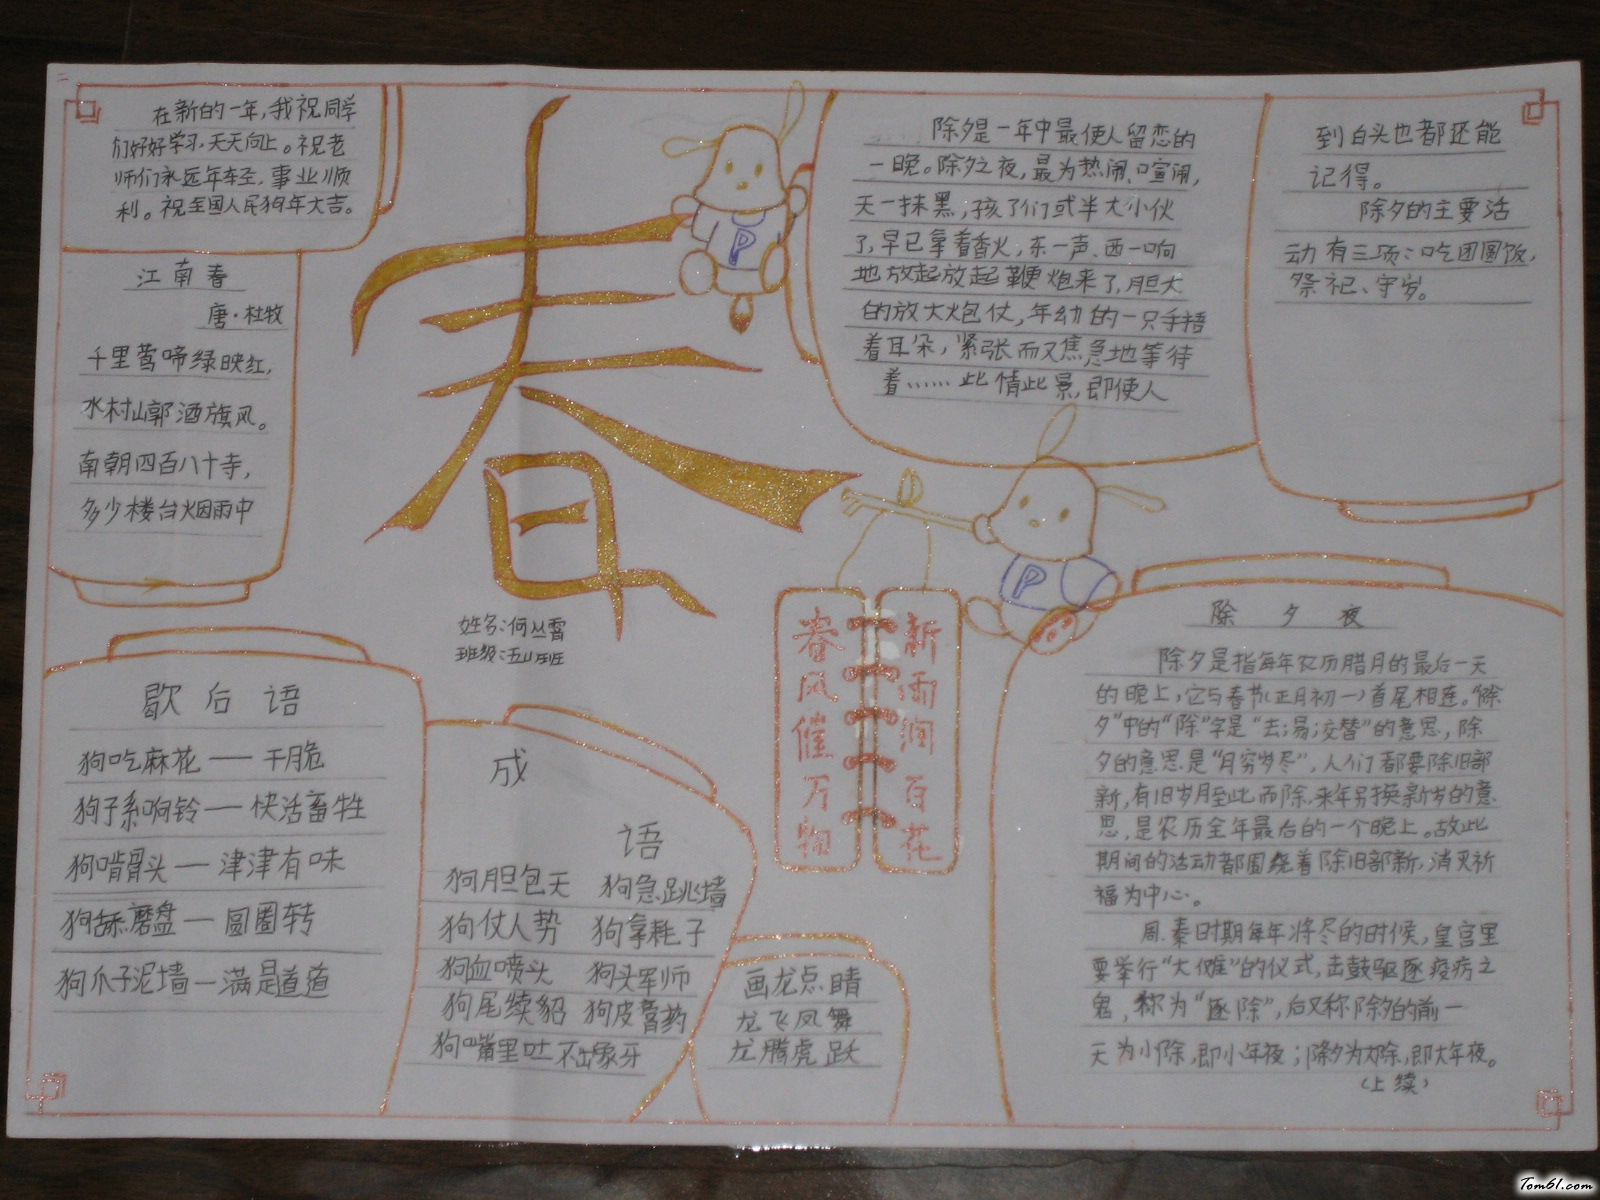 在新的一年,我祝同学
们好好学习,天天向上。祝老
师们永远年轻,事业顺
利。祝全国人民狗年大吉。
江南春
唐·杜牧
千里莺啼绿映红,
水村山郭酒旗风。
南朝四百八十寺,
多少楼台烟雨中
春
姓名:何丛霄
P
除夕是一年中最使人留恋的
一晚。除夕之夜,最为热闹、喧闹,
天一抹黑,孩子们或半大小伙
子,早已拿着香火,东一声、西一响
地放起放起鞭炮来了,胆大
的放大炮仗,年幼的一只手捂
着耳朵,紧张而又焦急地等待
着……此情此景,即使人
到白头也都还能
记得。
除夕的主要活
动有三项:吃团圆饭,
祭祀、守岁。
P
春风催万物
新雨润百花
歇后语
狗吃麻花——干脆
狗子系响铃——快活畜牲
狗啃骨头——津津有味
狗舔磨盘—圆圈转
狗爪子泥墙—满是道道
成
语
狗胆包天 狗急跳墙
狗仗人势 狗拿耗子
狗血喷头 狗头军师
狗尾续貂 狗皮膏药
狗嘴里吐不出象牙
画龙点睛
龙飞凤舞
龙腾虎跃
除夕夜
除夕是指每年农历腊月的最后一天
的晚上,它与春节(正月初一)首尾相连。“除
夕”中的“除”字是“去;易;交替”的意思,除
夕的意思是“月穷岁尽”,人们都要除旧部
新,有旧岁月至此而除,来年另换新岁的意
思,是农历全年最后的一个晚上。故此
期间的活动都围绕着除旧部新,消灭祈
福为中心。
周、秦时期每年将尽的时候,皇宫里
要举行“大傩”的仪式,击鼓驱逐疫疠之
鬼,称为“逐除”,后又称除夕的前一
天为小除,即小年夜;除夕为大除,即大年夜。
(上续)
Tom61.com